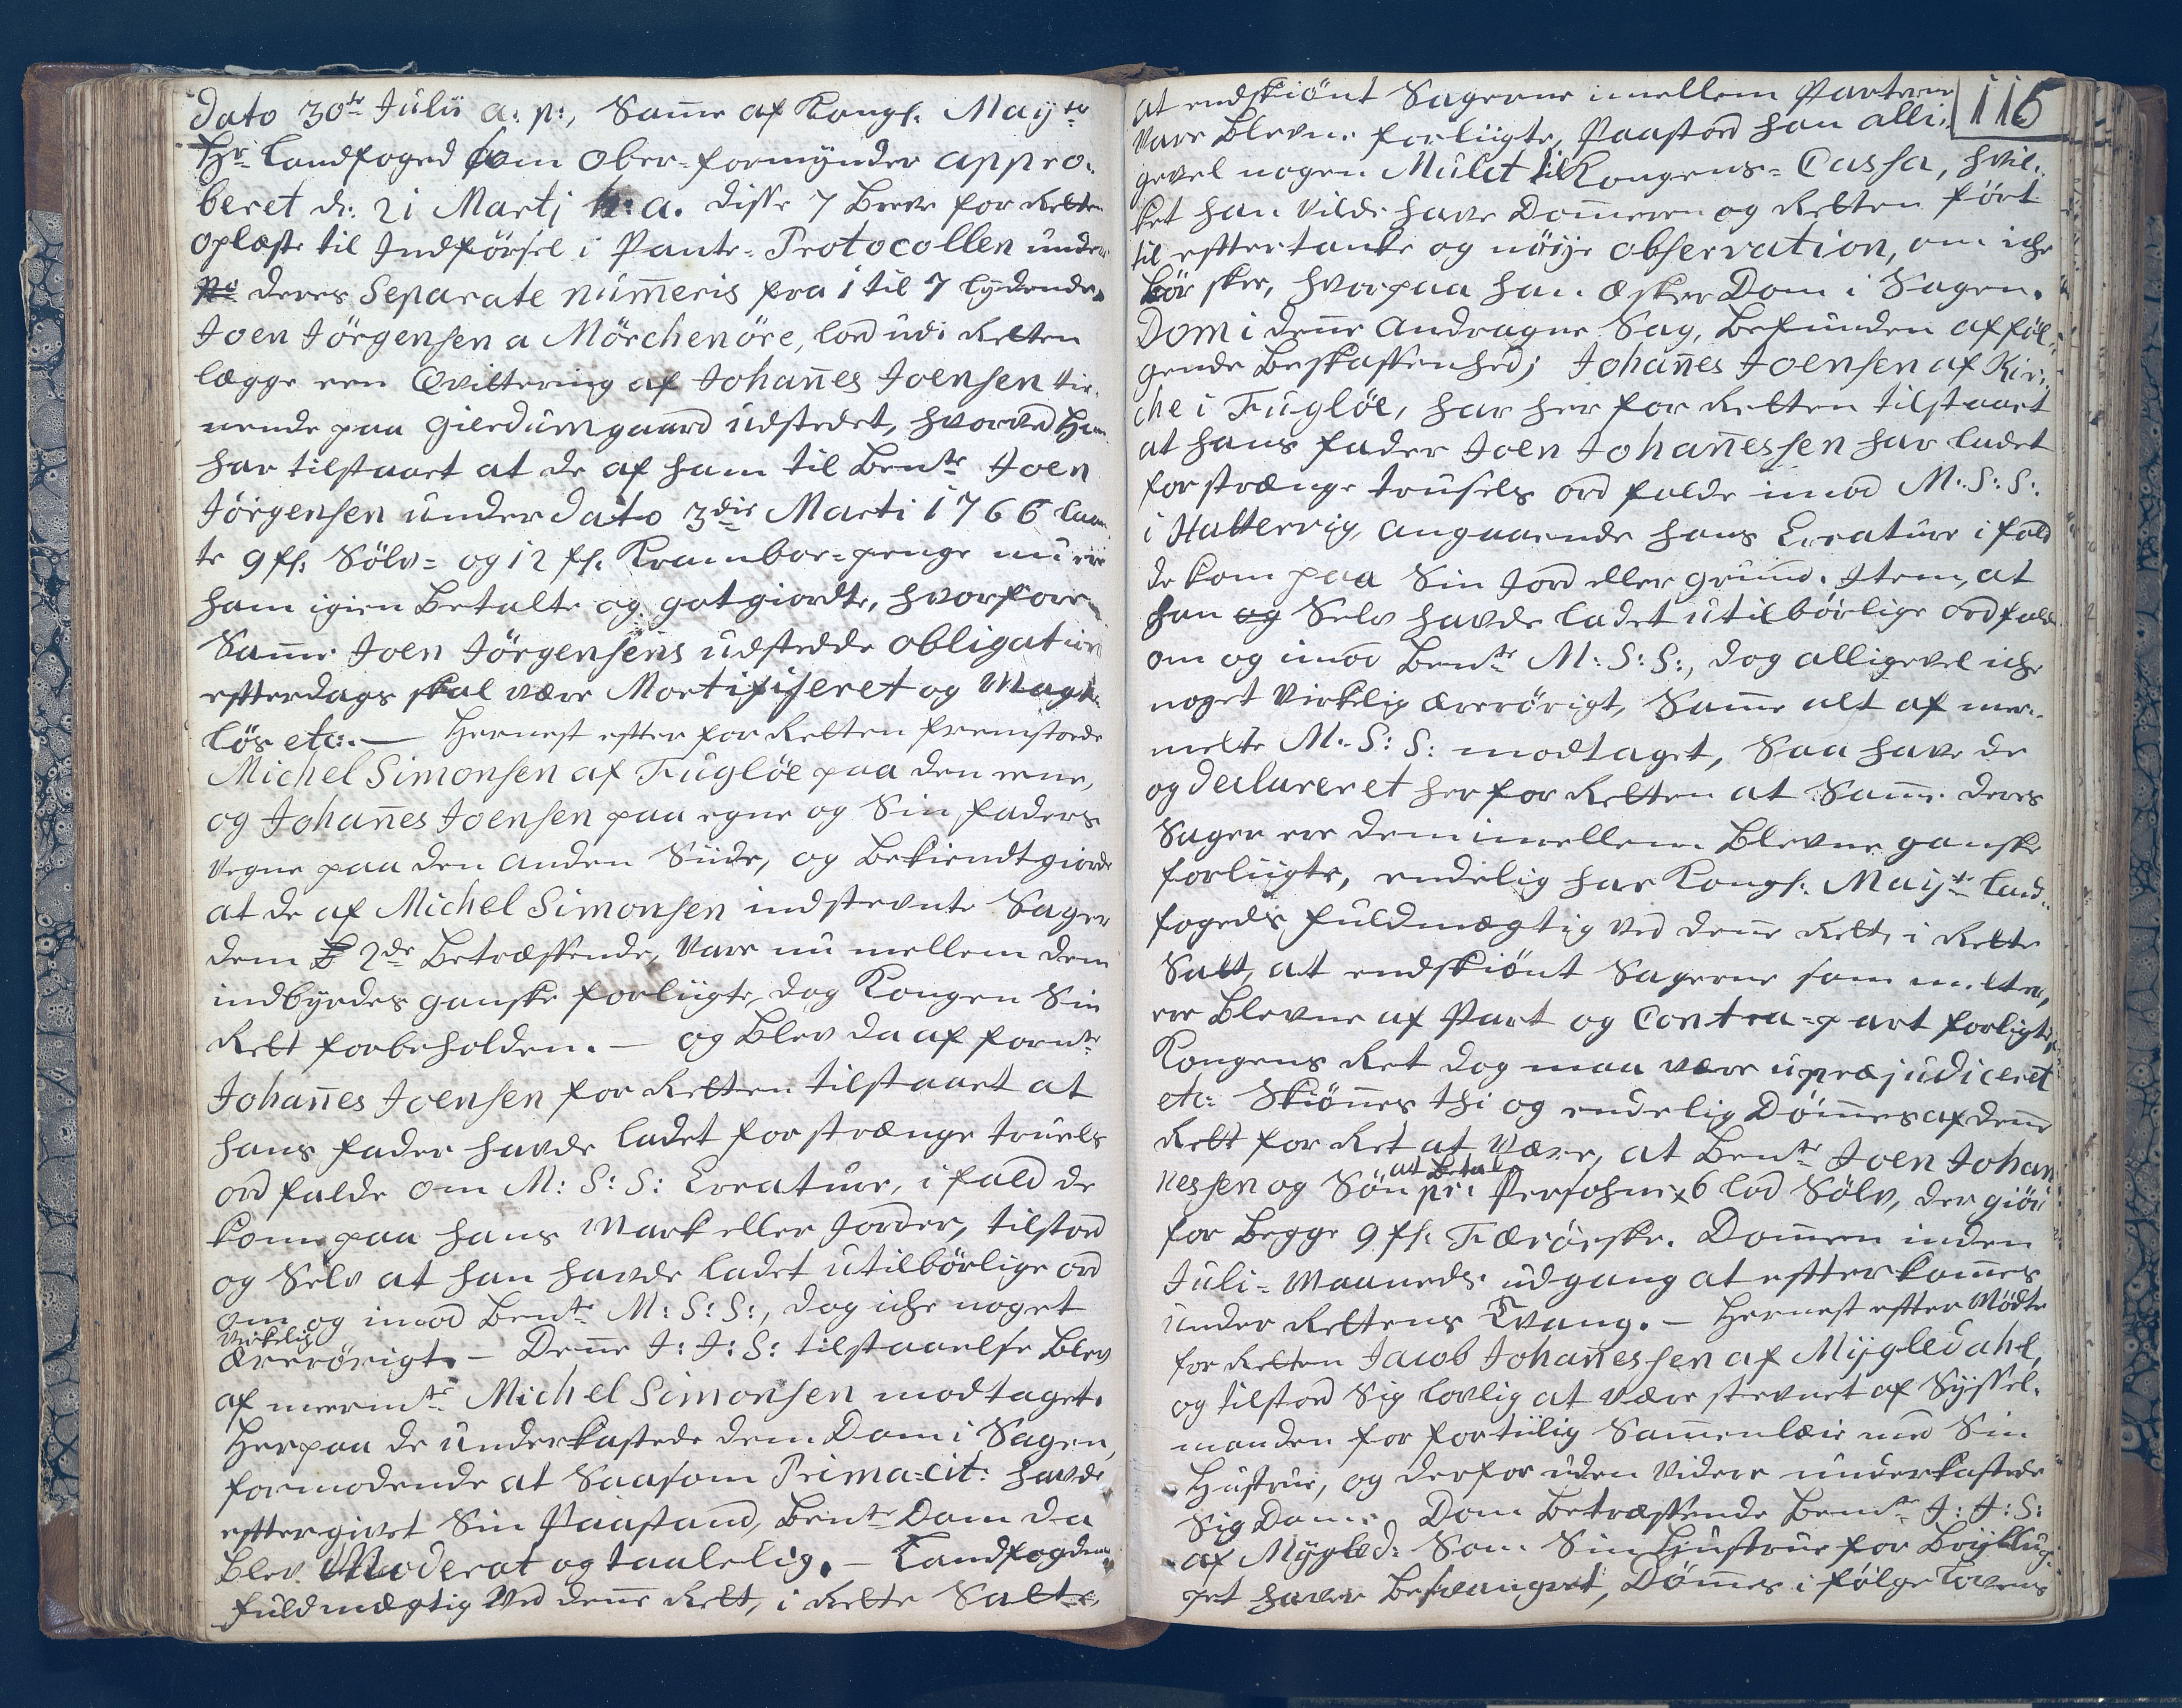 dato 30te Julii a. p:, Sam̅e af Kongl. Mayts
Hr. Landfoged som Ober-formynder appro-
beret d: 21 Martj h: a. disse 7 Breve for Retten
oplæste til Indførsel i Pante-Protocollen under
deres Separate num̅eris fra 1 til 7 lydende.
Joen Jörgensen a Mörchenöre, lod udi Retten
lægge een Qvittering af Johan̅es Joensen tie-
nende paa Gierdumgaard udstedet, hvorved Han
har tilstaaet at de af ham til Bente Joen
Jörgensen under dato 3die Marti 1766 laan-
te 9 fl: Sölv- og 12 fl. Krambor-penge nu ere
ham igien Betalte og gotgiordte, hvorfore
Sam̅e Joen Jörgensens udstedde obligation
effterdags skal være Mortifiseret og Magt-
løs etc:. — Hernest efter for Retten fremstoede
Michel Simonsen af Fuglöe paa den eene,
og Johan̅es Joensen paa egne og Sin faders
vegne paa den anden Siide, og Bekiendtgiorde
at de af Michel Simonsen indstevnte Sager
dem 2de Betræffende, vare nu mellem dem
indbyrdes ganske forliigte, dog Kongen Sin
Rett forbeholden. — og Blev da af fornte
Johan̅es Joensen for Retten tilstaaet at
hans fader havde ladet for strænge truels
ord falde om M: S: S: Creature, i fald de
kom paa hans Mark eller Jorder, tilstod
og Selv at han havde ladet utilbörlige ord
om og imod Bente M: S: S:, dog iche noget
virkelig
ærerörigt. — Den̅e J: J: S: tilstaaelse Blev
af meermte Michel Simonsen modtaget.
Herpaa de underkastede dem Dom i Sagen,
formodende at Saasom Prima-cit: havde
efftergivet Sin Paastand, Bente Dom da
Blev Moderat og taalelig. — Landfogdens
fuldmægtig ved den̅e Rett, i Rette Satte,
115
at endskiönt Sagerne imellem Parterne
vare Blevne forliigte, Paastod han alli-
gevel nogen Mulct til Kongens-Cassa, hvil-
ket han vilde have Dom̅eren og Retten fört
til efftertanke og nöije observation, om iche
bör skee, hvorpaa han æsker Dom i Sagen.
Dom i den̅e Andragne Sag, befunden af föl-
gende Beskaffenhed; Johan̅es Joensen af Kir-
che i Fuglöe, har her for Retten tilstaaet
at hans fader Joen Johan̅essen har ladet
for strænge trusels ord falde imod M: S: S:
i Hattervig, angaaende hans Creature i fald
de kom paa Sin Jord eller grund. Item, at
han og Selv havde ladet utilbörlige ord falde
om og imod Bente M: S: S:, dog alligevel iche
noget virkelig ærerörigt, Sam̅e alt af meer-
melte M: S: S: modtaget, Saa have de
og declareret her for Retten at Sam̅e deres
Sager ere dem imellem Blevne ganske
forliigte, endelig har Kongl. Mayts Land-
fogeds fuldmægtig ved den̅e Rett, i Rette
Satt, at endskiönt Sagerne som meltes,
ere Blevne af Part og Contra-part forligte,
Kongens Ret dog maa være upræjudiceret
etc: Skiön̅es thi og endelig Döm̅es af den̅e
Rett for Ret at være, at Bente Joen Johan
at betale
nessen og Sön pr: Persohn 6 lod Sölv, der giör
for Begge 9 fl. Færöeske. Dom̅en inden
Juli-Maaneds udgang at effterkom̅es
under Rettens Tvang. — Hernest effter Mödte
for Retten Jacob Johan̅essen af Mijgledahl,
og tilstod Sig lovlig at være stevnet af Syssel-
manden for fortiilig Sam̅enleie med Sin
Hustrue, og derfor uden videre underkastede
Sig Dom. Dom Betræffende Bente J: J: S:
af Mygled: Som Sin Hustrue for Bryllup-
pet haver Besvangret, Döm̅es i følge Lovens